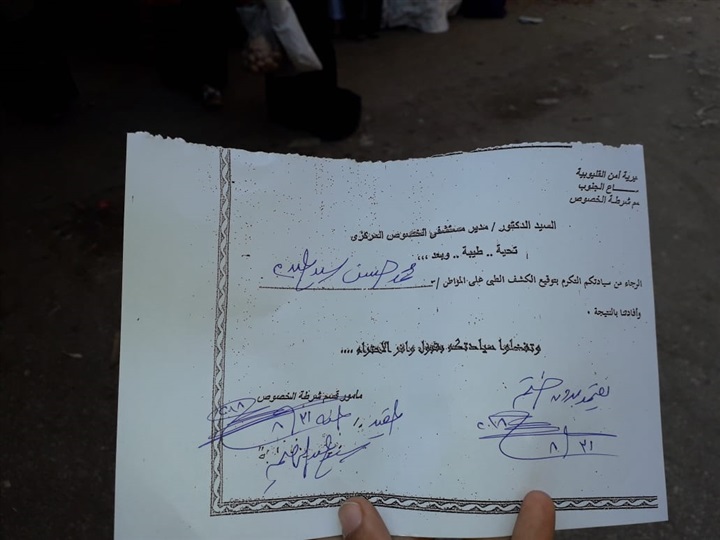 ديرية أمن القليوبية
ـاع الجنوب
ـم شرطة الخصوص
السيد الدكتور / مدير مستشفى الخصوص المركزى
تحية .. طيبة .. وبعد ,,,
الرجاء من سيادتكم التكرم بتوقيع الكشف الطبى على المواطن /- محمد حسن سيد
وأفادتنا بالنتيجة .
وتفضلوا سيادتكم بقبول وافر الاحترام ,,,,
مأمور قسم شرطة الخصوص
يعتمد بدون ختم
٨/٣١
٨/٣١